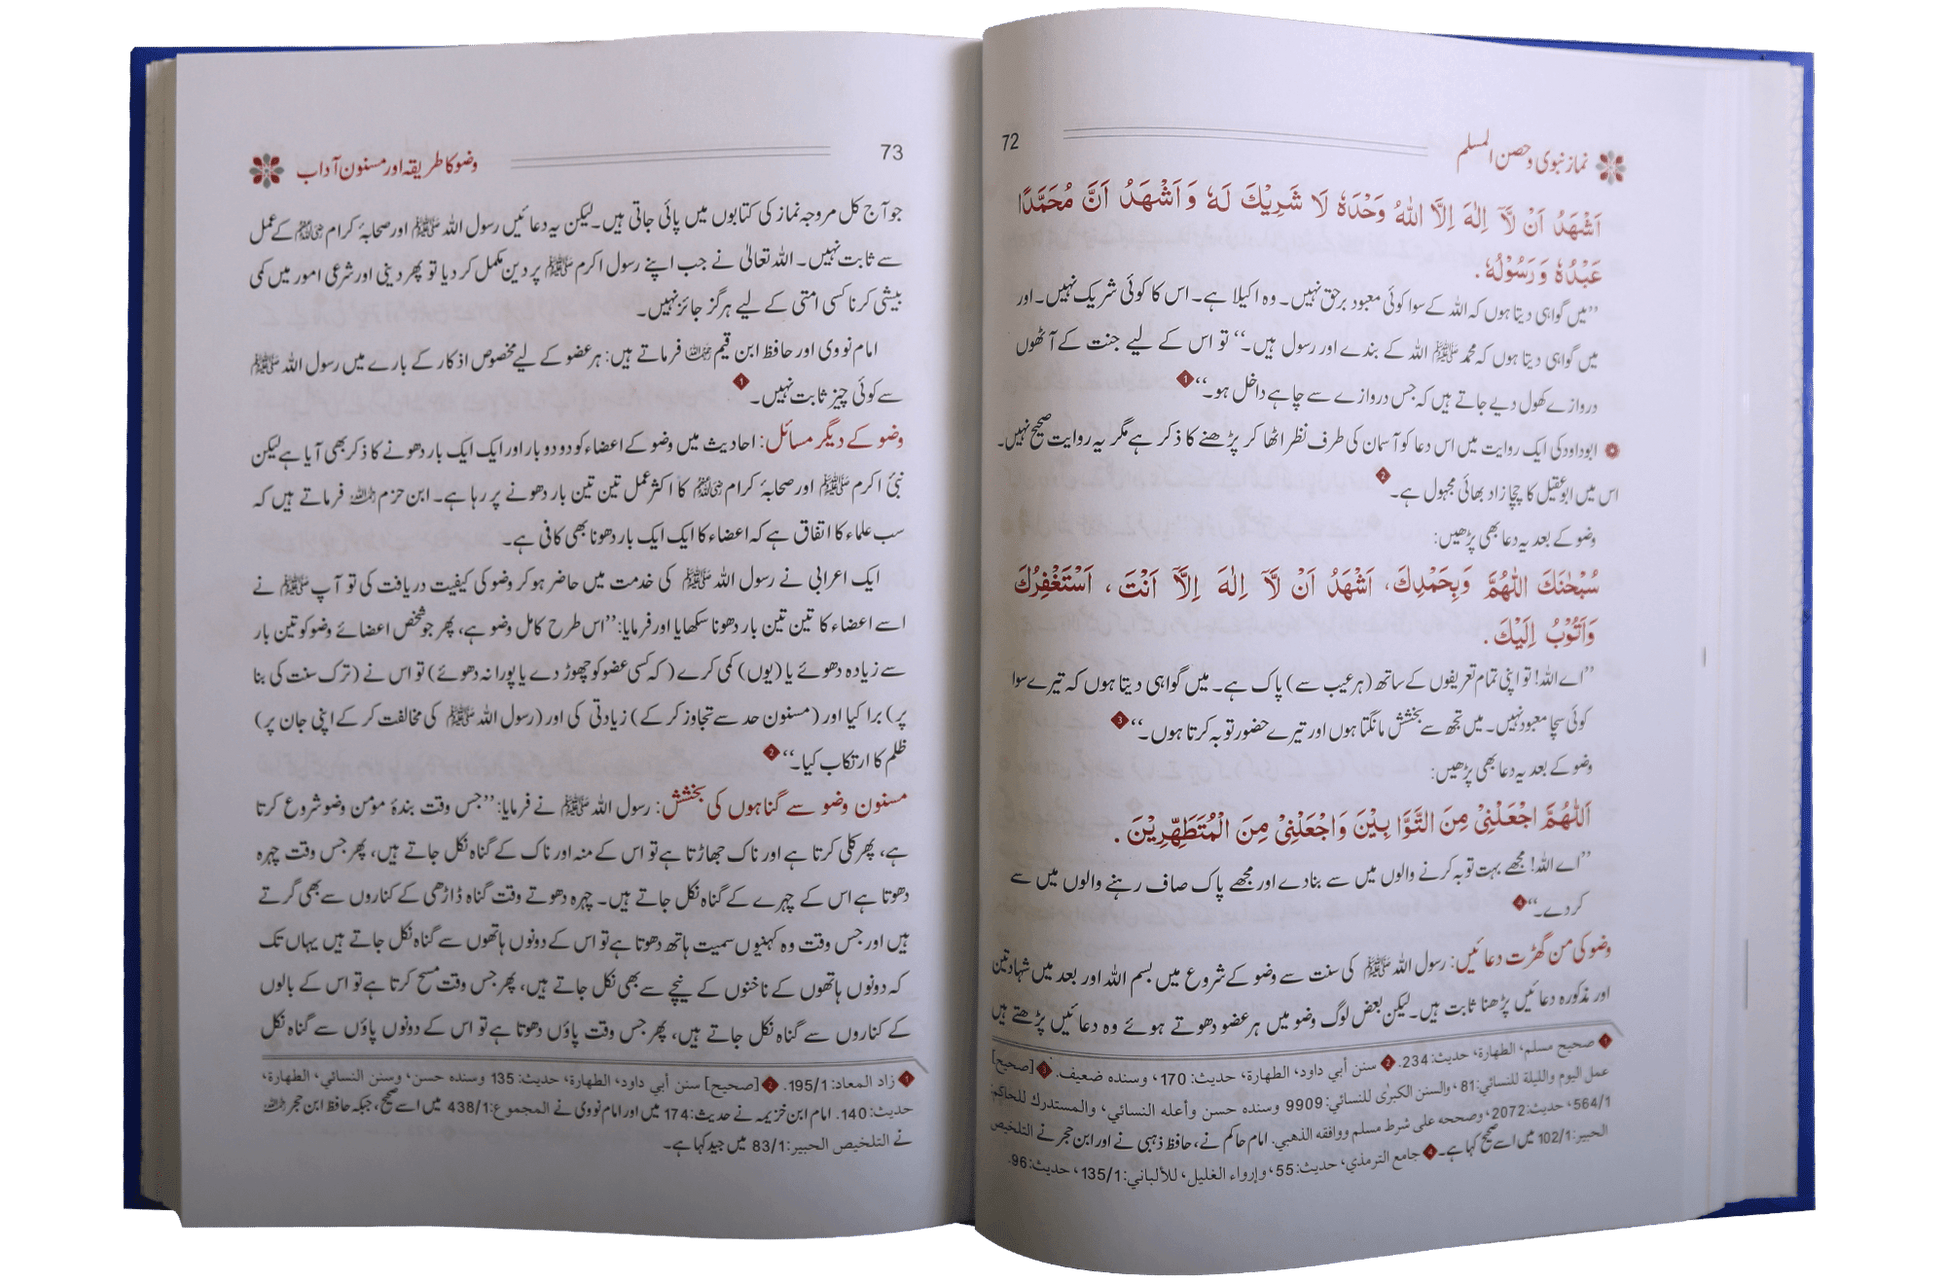 72
نماز نبوی وحصن المسلم
اَشْهَدُ اَنْ لَّآ اِلٰهَ اِلَّا اللّٰهُ وَحْدَهٗ لَا شَرِيْكَ لَهٗ وَاَشْهَدُ اَنَّ مُحَمَّدًا
عَبْدُهٗ وَرَسُوْلُهٗ.
’’میں گواہی دیتا ہوں کہ اللہ کے سوا کوئی معبود برحق نہیں۔ وہ اکیلا ہے۔ اس کا کوئی شریک نہیں۔ اور
میں گواہی دیتا ہوں کہ محمد ﷺ اللہ کے بندے اور رسول ہیں۔‘‘ تو اس کے لیے جنت کے آٹھوں
دروازے کھول دیے جاتے ہیں کہ جس دروازے سے چاہے داخل ہو۔‘‘ 1
ابوداود کی ایک روایت میں اس دعا کو آسمان کی طرف نظر اٹھا کر پڑھنے کا ذکر ہے مگر یہ روایت صحیح نہیں۔
اس میں ابوعقیل کا چچا زاد بھائی مجہول ہے۔ 2
وضو کے بعد یہ دعا بھی پڑھیں:
سُبْحٰنَكَ اللّٰهُمَّ وَبِحَمْدِكَ، اَشْهَدُ اَنْ لَّآ اِلٰهَ اِلَّآ اَنْتَ، اَسْتَغْفِرُكَ
وَاَتُوْبُ اِلَيْكَ.
’’اے اللہ! تو اپنی تمام تعریفوں کے ساتھ (ہر عیب سے) پاک ہے۔ میں گواہی دیتا ہوں کہ تیرے سوا
کوئی سچا معبود نہیں۔ میں تجھ سے بخشش مانگتا ہوں اور تیرے حضور توبہ کرتا ہوں۔‘‘ 3
وضو کے بعد یہ دعا بھی پڑھیں:
اَللّٰهُمَّ اجْعَلْنِيْ مِنَ التَّوَّابِيْنَ وَاجْعَلْنِيْ مِنَ الْمُتَطَهِّرِيْنَ.
’’اے اللہ! مجھے بہت توبہ کرنے والوں میں سے بنا دے اور مجھے پاک صاف رہنے والوں میں سے
کر دے۔‘‘ 4
وضو کی من گھڑت دعائیں: رسول اللہ ﷺ کی سنت سے وضو کے شروع میں بسم اللہ اور بعد میں شہادتین
اور مذکورہ دعائیں پڑھنا ثابت ہیں۔ لیکن بعض لوگ وضو میں ہر عضو دھوتے ہوئے وہ دعائیں پڑھتے ہیں
1 صحيح مسلم، الطهارة، حديث: 234. 2 سنن أبي داود، الطهارة، حديث: 170، وسنده ضعيف. 3 [صحيح]
عمل اليوم والليلة للنسائي: 81، والسنن الكبرى للنسائي: 9909 وسنده حسن وأعله النسائي، والمستدرك للحاكم:
564/1، حديث: 2072، وصححه على شرط مسلم ووافقه الذهبي. امام حاکم نے، حافظ ذہبی نے اور ابن حجر نے التلخيص
الحبير: 102/1 میں اسے صحیح کہا ہے۔ 4 جامع الترمذي، حديث: 55، وإرواء الغليل، للألباني: 135/1، حديث: 96.
73
وضو کا طریقہ اور مسنون آداب
جو آج کل مروجہ نماز کی کتابوں میں پائی جاتی ہیں۔ لیکن یہ دعائیں رسول اللہ ﷺ اور صحابۂ کرام کے عمل
سے ثابت نہیں۔ اللہ تعالیٰ نے جب اپنے رسول اکرم ﷺ پر دین مکمل کر دیا تو پھر دینی اور شرعی امور میں کمی
بیشی کرنا کسی امتی کے لیے ہرگز جائز نہیں۔
امام نووی اور حافظ ابن قیم فرماتے ہیں: ہر عضو کے لیے مخصوص اذکار کے بارے میں رسول اللہ ﷺ
سے کوئی چیز ثابت نہیں۔ 1
وضو کے دیگر مسائل: احادیث میں وضو کے اعضاء کو دو دو بار اور ایک ایک بار دھونے کا ذکر بھی آیا ہے لیکن
نبیٔ اکرم ﷺ اور صحابۂ کرام کا اکثر عمل تین تین بار دھونے پر رہا ہے۔ ابن حزم فرماتے ہیں کہ
سب علماء کا اتفاق ہے کہ اعضاء کا ایک ایک بار دھونا بھی کافی ہے۔
ایک اعرابی نے رسول اللہ ﷺ کی خدمت میں حاضر ہو کر وضو کی کیفیت دریافت کی تو آپ ﷺ نے
اسے اعضاء کا تین تین بار دھونا سکھایا اور فرمایا: ’’اس طرح کامل وضو ہے، پھر جو شخص اعضائے وضو کو تین بار
سے زیادہ دھوئے یا (یوں) کمی کرے (کہ کسی عضو کو چھوڑ دے یا پورا نہ دھوئے) تو اس نے (ترک سنت کی بنا
پر) برا کیا اور (مسنون حد سے تجاوز کر کے) زیادتی کی اور (رسول اللہ ﷺ کی مخالفت کر کے اپنی جان پر)
ظلم کا ارتکاب کیا۔‘‘ 2
مسنون وضو سے گناہوں کی بخشش: رسول اللہ ﷺ نے فرمایا: ’’جس وقت بندۂ مومن وضو شروع کرتا
ہے، پھر کلی کرتا ہے اور ناک جھاڑتا ہے تو اس کے منہ اور ناک کے گناہ نکل جاتے ہیں، پھر جس وقت چہرہ
دھوتا ہے اس کے چہرے کے گناہ نکل جاتے ہیں۔ چہرہ دھوتے وقت گناہ ڈاڑھی کے کناروں سے بھی گرتے
ہیں اور جس وقت وہ کہنیوں سمیت ہاتھ دھوتا ہے تو اس کے دونوں ہاتھوں سے گناہ نکل جاتے ہیں یہاں تک
کہ دونوں ہاتھوں کے ناخنوں کے نیچے سے بھی نکل جاتے ہیں، پھر جس وقت مسح کرتا ہے تو اس کے بالوں
کے کناروں سے گناہ نکل جاتے ہیں، پھر جس وقت پاؤں دھوتا ہے تو اس کے دونوں پاؤں سے گناہ نکل
1 زاد المعاد: 195/1. 2 [صحيح] سنن أبي داود، الطهارة، حديث: 135 وسنده حسن، وسنن النسائي، الطهارة،
حديث: 140. امام ابن خزیمہ نے حدیث: 174 میں اور امام نووی نے المجموع: 438/1 میں اسے صحیح، جبکہ حافظ ابن حجر
نے التلخيص الحبير: 83/1 میں جید کہا ہے۔